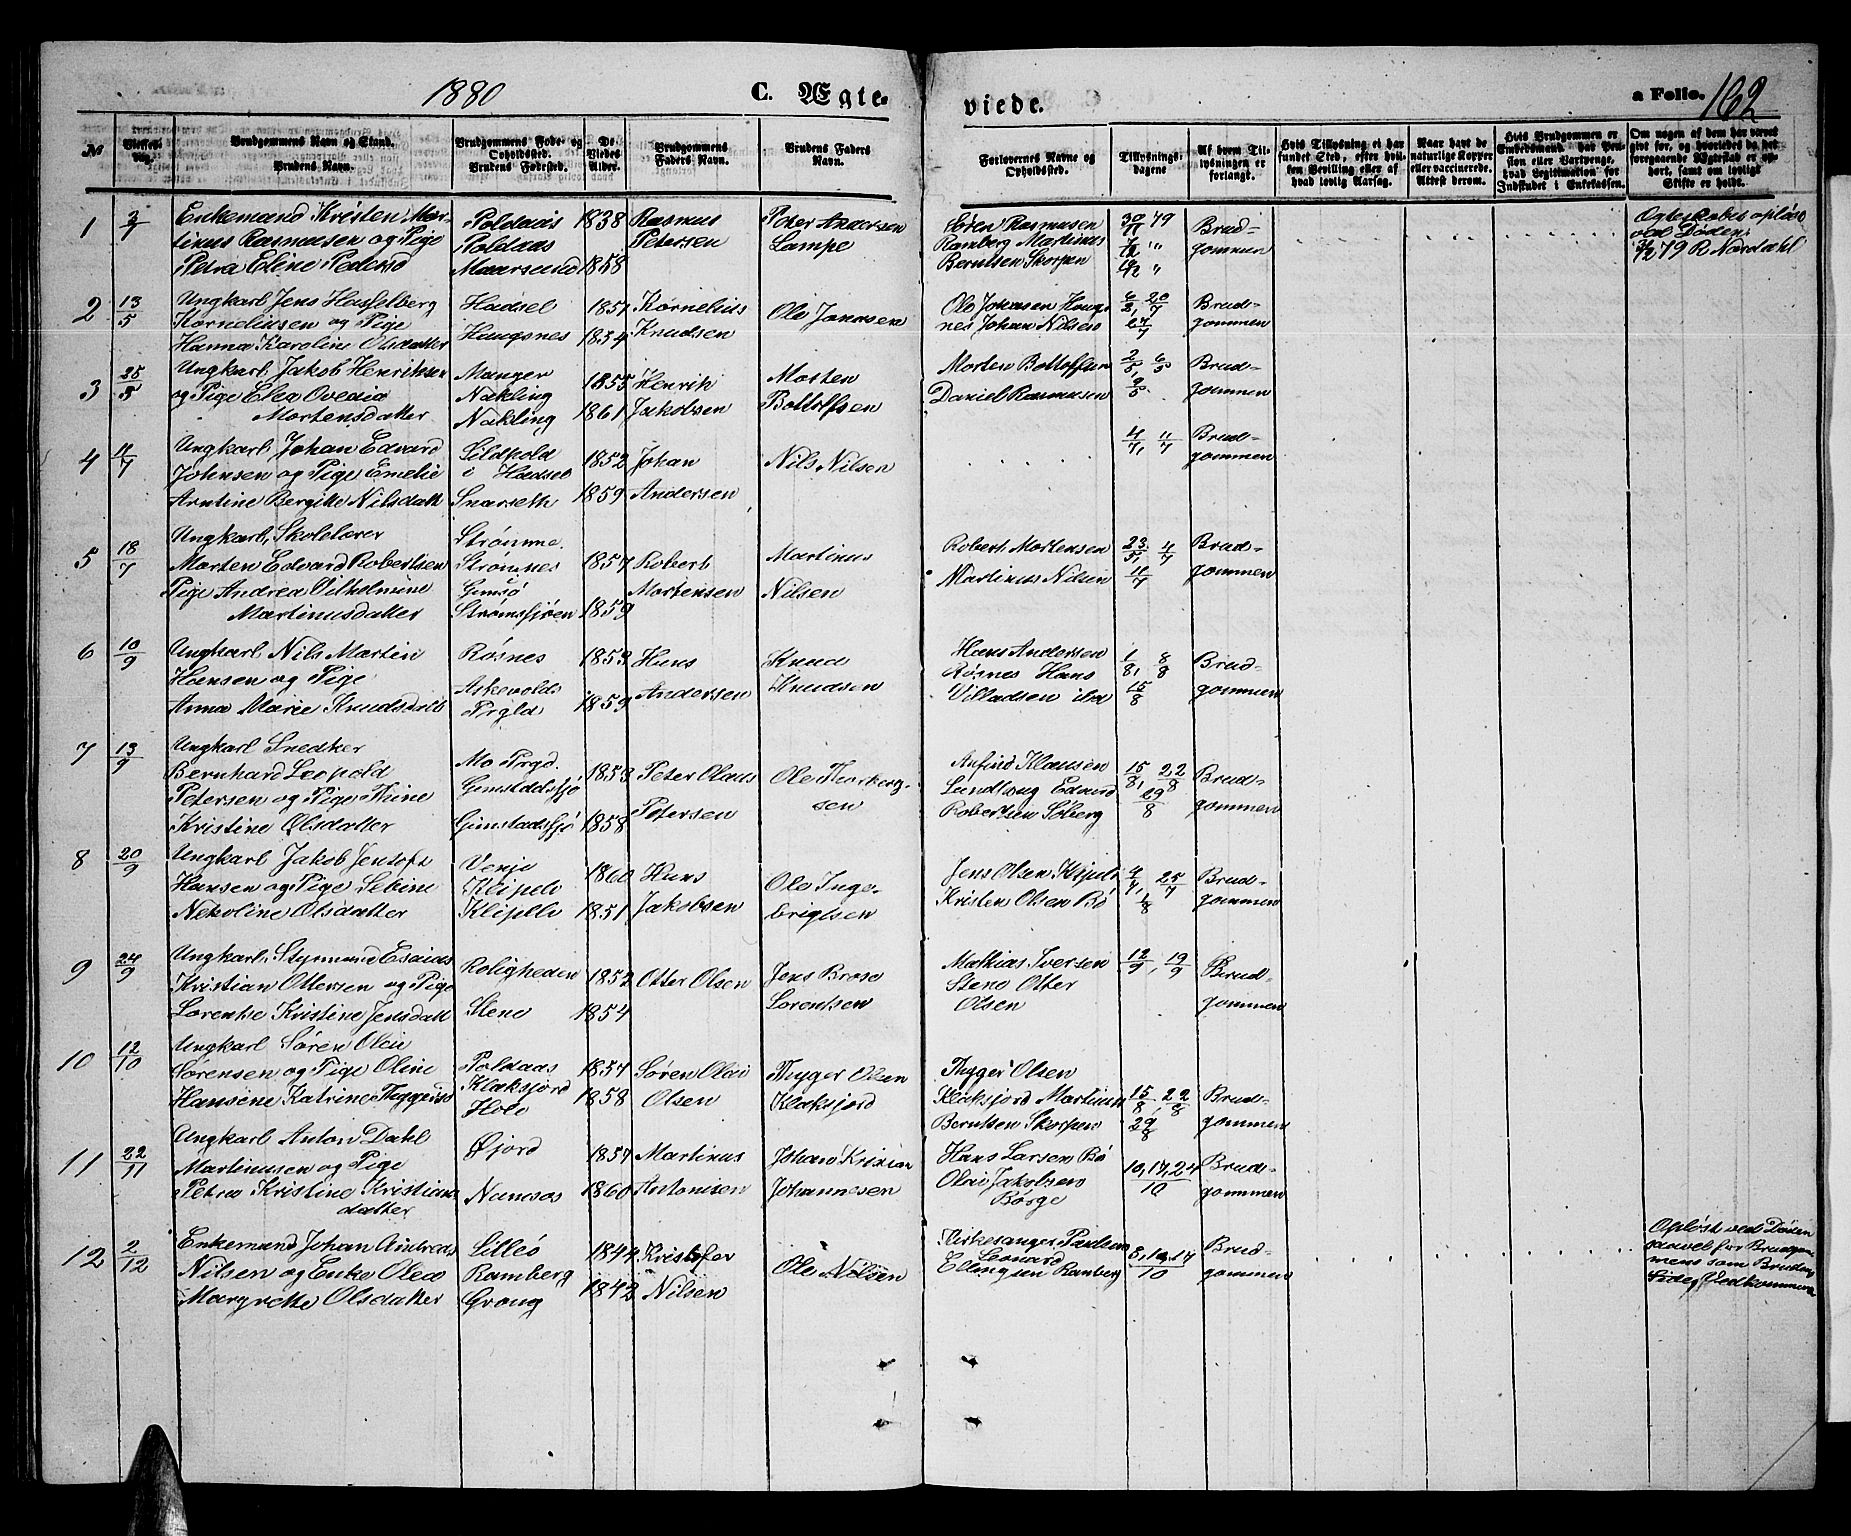 1880
C. Ægte-
viede.
a Folio. 162
№
Vielses-
Dag.
Brudgommens Navn og Stand.
Brudens Navn.
Brudgommens Føde- og
Opholdssted.
Brudens Fødested.
De
Viedes
Alder.
Brudgommens
Faders Navn.
Brudens Faders
Navn.
Forlovernes Navne og
Opholdssted.
Tillysnings-
dagene
Af hvem Til-
lysningen er
forlangt.
Hvis Tillysning ei har
fundet Sted, efter hvil-
ken Bevilling eller af
hvad lovlig Aarsag.
Naar havt de
naturlige Kopper
eller vaccinerede.
Attest derom.
Hvis Brudgommen er
Embedsmand har Pen-
sion eller Vartpenge,
hvad Legitimation for
Indskudet i Enkekassen.
Om nogen af dem har været
gift før, og hvorledes da det
foregaaende Ægteskab er op-
hørt, samt om lovligt
Skifte er holdt.
1 Enkemand Kristen Mar-
tinus Rasmusen og Pige
Petra Eline Pedersd
Poldaas
Poldaas
Maarsund
1838
1858
Rasmus
Petersen
Peter Andersen
Lampe
Søren Rasmusen
Ramberg Martinus
Berntsen Skorpen
30/11 79
7/12 "
Brud-
gommen
Ægteskabet opløst
ved Døden
79 R. Nordahl
2 13/5
Ungkarl Jens Hasselberg
Korneliusen og Pige
Hanna Karoline Olsdatter
Hadsel
Haugsnes
1851
1854
Kornelius
Knudsen
Ole Jonsen
Ole Johansen Haugs
nes Johan Nilsen
Brud-
gommen
3 25/5
Ungkarl Jakob Henriksen
og Pige Elea Ovedia
Mortensdatter
Manger
Nakling
Nakling
1855
1861
Henrik
Jakobsen
Morten
Bottolfsen
Morten Bottolfsen
Daniel Rasmusen
2/5, 6/5
9/5
Brud-
gommen
4 11/7
Ungkarl Johan Edvard
Johnsen og Pige Emelie
Arntine Bergitte Nilsdatt
Sildpold
i Hadsel
Snarseth
1852
1859
Johan
Andersen
Nils Nilsen
4/7, 11/7
Brud-
gommen
5 18/7
Ungkarl, Skolelærer
Morten Edvard Robertsen
Pige Andrea Vilhelmine
Martinusdatter
Strømme
Strømnes
Gimsø
Strømsfjøen
1857
1859
Robert
Mortensen
Martinus
Nilsen
Robert Mortensen
Martinus Nilsen
23/5, 4/7
11/7
Brud-
gommen
6 10/9
Ungkarl Nils Martin
Hansen og Pige
Anna Marie Knudsdatt
Røsnes
Askevolds
Prgld
1853
1859
Hans
Andersen
Knud
Knudsen
Hans Andersen
Røsnes Hans
Villadsen ibd
1/8, 8/8
15/8
Brud-
gommen
7 13/9
Ungkarl Snedker
Bernhard Leopold
Petersen og Pige Thine
Kristine Olsdatter
Mo Prgd.
Gimstadsfjø
Gimstadsfjø
1853
1858
Peter Olaus
Petersen
Ole Thorberg-
sen
Anfind Klausen
Edvard
Robertsen Søberg
15/8, 22/8
29/8
Brud-
gommen
8 20/9
Ungkarl Jakob Jentoft
Hansen og Pige Sekine
Nekoline Olsdatter
Klipelv
1860
1851
Hans
Jakobsen
Ole Inge-
brigtsen
Jens Olsen Klipelv
Kristen Olsen Bø
25/7
1/8
Brud-
gommen
9 24/9
Ungkarl, Styrmand Esaias
Kristian Ottersen og Pige
Lorentse Kristine Jensdatt
Roligheden
Stene
1852
1854
Otter Olsen
Jens Brose
Lorentsen
Mathias Iversen
Stene Otter
Olsen
12/9, 19/9
Brud-
gommen
10 12/10
Ungkarl Søren Olai
Sørensen og Pige Oline
Hansene Katrine
Poldaas
Klaksjord
Hole
1857
1858
Søren Olai
Olsen
Thyger Olsen
Klaksjord
Thyger Olsen
Klaksjord Martinus
Berntsen Skorpen
15/8, 22/8
29/8
Brud-
gommen
11 22/11
Ungkarl Anton Dahl
Martinusen og Pige
Petra Kristine Kristians
datter
Øjord
Namsos
1857
1860
Martinus
Antonisen
Johan Kristian
Johannesen
Hans Larsen Bø
Olai Jakobsen
Børge
10, 17, 24/10
Brud-
gommen
12 2/12
Enkemand Johan Andreas
Nilsen og Enke Olea
Margrethe Olsdatter
Lilleø
Ramberg
Grong
1844
1843
Kristofer
Nilsen
Ole Nilsen
Kirkesanger Paulsen
Leonard
Elingsen Ramberg
3, 10, 17/10
Brud-
gommen
Opløst ved Døden
saavel for Brudgom
mens som Brudens